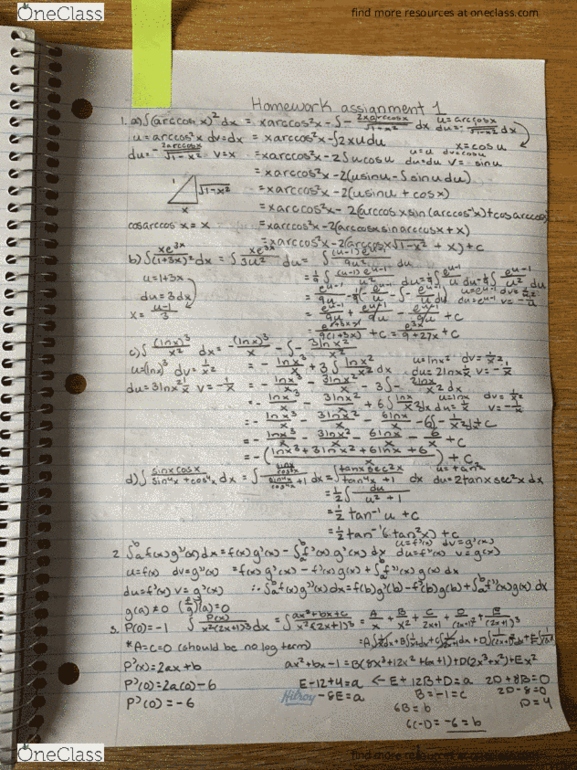 OneClass
find more resources at oneclass.com
Homework assignment 1
1. a) ∫(arccosx)² dx = xarccos²x - ∫ - 2xarccosx/√1-x² dx u = arccosx du = -1/√1-x² dx
u = arccos²x dv = dx = xarccos²x - ∫2xudu x = cosu
du = - 2arccosx/√1-x² v = x = xarccos²x - 2∫ucosu u = u dv = cosu du = du v = sinu
= xarccos²x - 2(usinu - ∫sinudu)
1 √1-x² = xarccos²x - 2(usinu + cosx)
x = xarccos²x - 2(arccosxsin(arccos⁻x) + cosarccosx)
cosarccosx = x = xarccos²x - 2(arccosxsinarccosx + x)
= xarccos²x - 2(arccosx√1-x² + x) + c
b) ∫ xe³ˣ/(1+3x)² dx = ∫ xe³ˣ/3u² du = ∫ (u-1)e/9u² du
u = 1+3x
du = 3dx
x = u-1/3
= e³ˣ/9(1+3x) + c = e³ˣ/9+27x + c
c) ∫ (lnx)³/x² dx = -(lnx)³/x - ∫ - 3lnx²/x²
u = (lnx)³ dv = 1/x² = - lnx³/x + 3∫ lnx²/x² dx u = lnx² dv = 1/x² du = 2lnx 1/x v = -1/x
du = 3lnx² 1/x v = -1/x = - lnx³/x - 3lnx²/x - 3∫ - 2lnx/x² dx
= - lnx³/x - 3lnx²/x + 6∫ lnx/x² dx u = lnx dv = 1/x² du = 1/x v = -1/x
= - lnx³/x - 3lnx²/x - 6lnx/x - 6∫ - 1/x² dx + c
= - lnx³/x - 3lnx²/x - 6lnx/x - 6/x + c
= -(lnx³ + 3lnx² + 6lnx + 6/x) + c
d) ∫ sinxcosx/sin⁴x+cos⁴x dx = ∫ sinx/cos³x / sin⁴x/cos⁴x +1 dx = ∫ tanxsec²x/tan⁴x+1 dx u = tan² du = 2tanxsec²x dx
= 1/2 ∫ du/u²+1
= 1/2 tan⁻¹u + c
= 1/2 tan⁻¹(tan²x) + c
2. ∫ᵇₐ f(x)g''(x)dx = f(x)g'(x) - ∫ᵇₐ f'(x)g'(x) dx u = f'(x) dv = g'(x) du = f''(x) v = g(x)
u = f(x) dv = g''(x) = f(x)g'(x) - f'(x)g(x) + ∫ᵇₐ f''(x)g(x) dx
du = f'(x) v = g'(x) ∴ ∫ᵇₐ f(x)g''(x)dx = f(b)g'(b) - f'(b)g(b) + ∫ᵇₐ f''(x)g(x) dx
3. P(0) = -1 ∫ P(x)/x²(2x+1)³ dx = ∫ ax²+bx+c/x²(2x+1)³ = A/x + B/x² + C/2x+1 + D/(2x+1)² + E/(2x+1)³
*A=C=0 (should be no log term)
P'(x) = 2ax+b ax²+bx-1 = B(8x³+12x²+6x+1)+D(2x³+x²)+Ex²
P'(0) = 2a(0)-6 E-12+4=a ← E+12B+D=a 2D+8B=0
P'(0) = -6 Hilroy -8E=a B=-1=c 2D-8=0
6B=b D=4
6(-1)=-6=b
OneClass
find more resources at oneclass.com